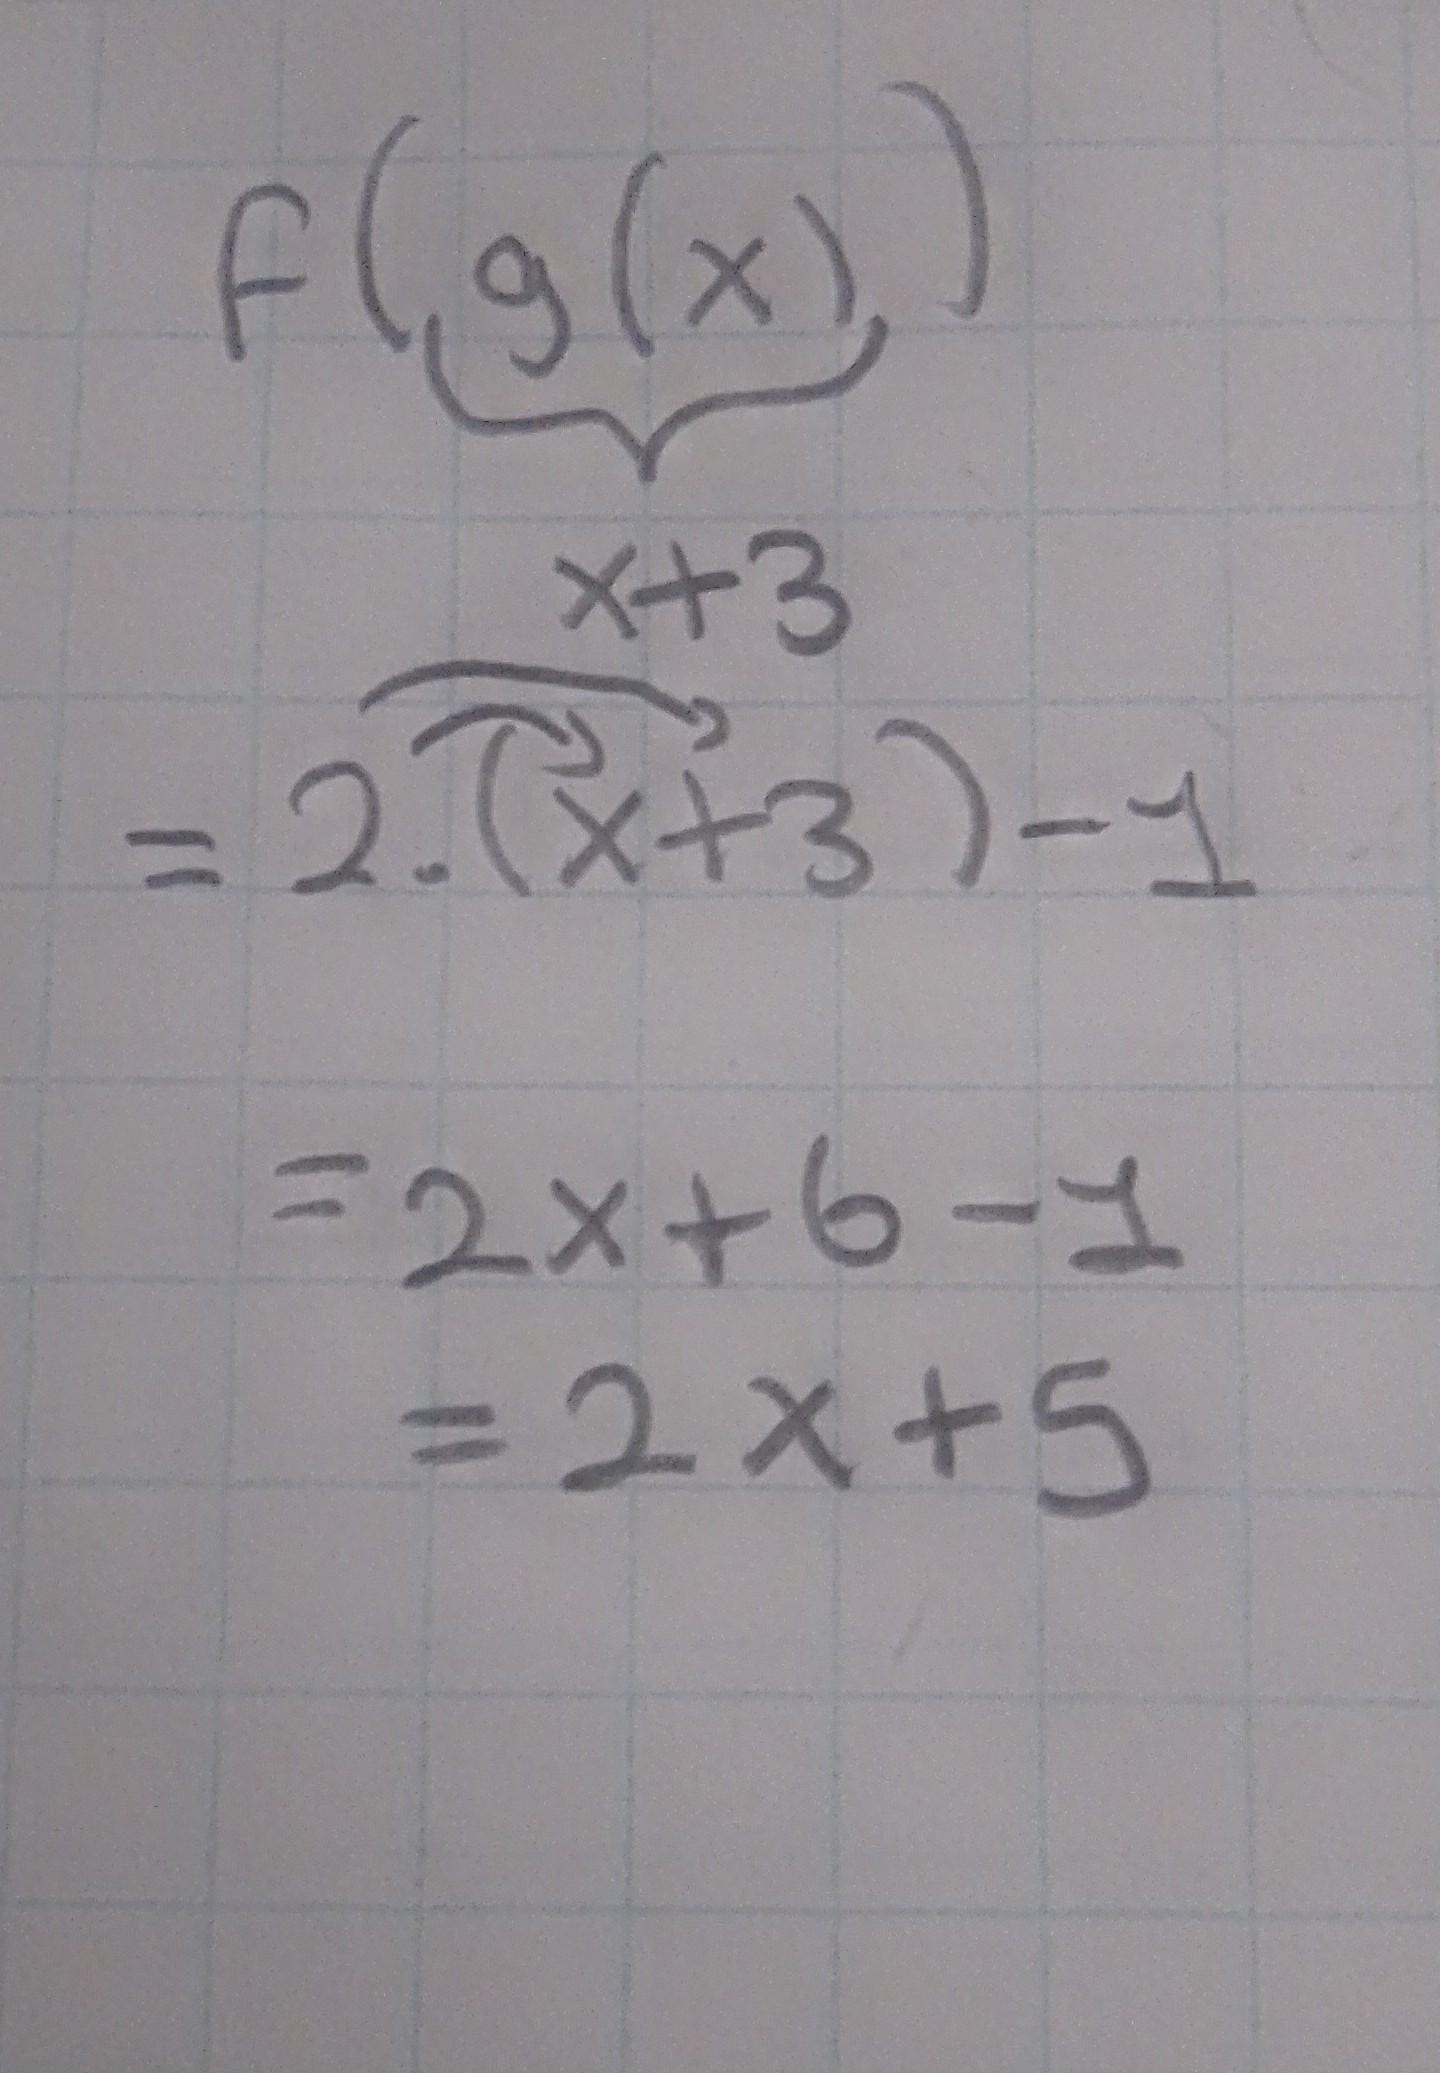 f(g(x))
x+3
=2.(x+3)-1
=2x+6-1
=2x+5